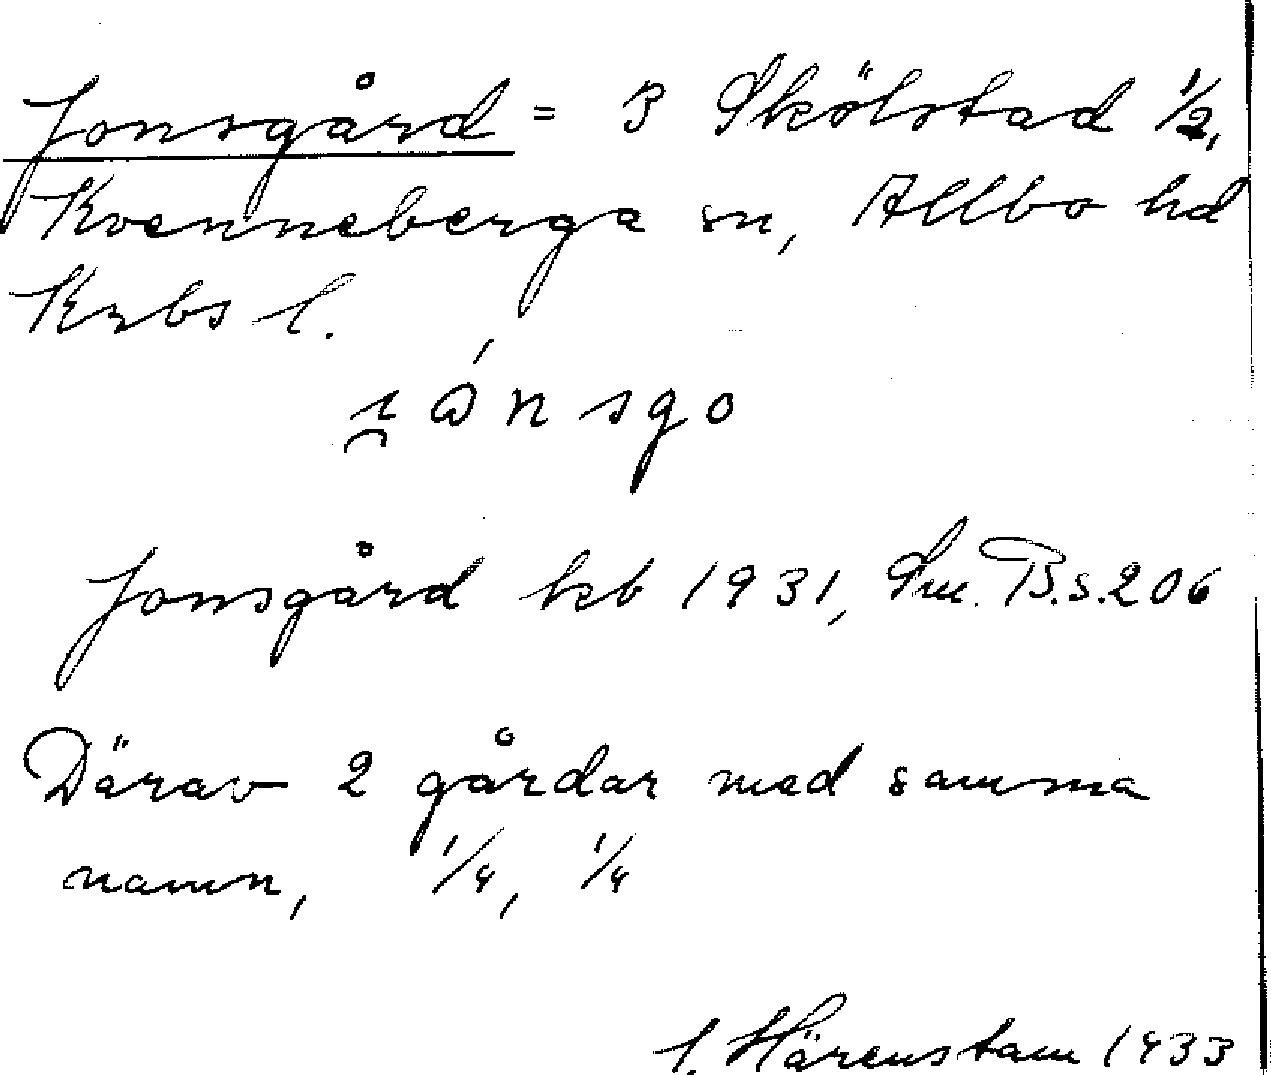 Jonsgård = 3 Skölstad 1/2,
Kvenneberga sn, Allbo hd
Krbs l.
Jonsgård kb 1931, Sm. B.s. 206
Därav 2 gårdar med samma
namn, 1/4, 1/4
Härenstam 1933